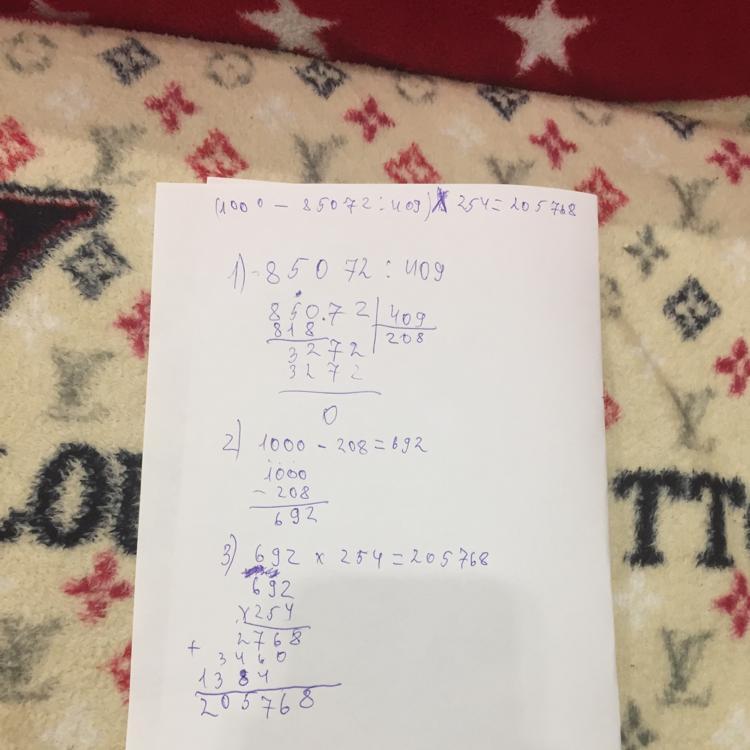 (1000 - 85072 : 409) x 254 = 205768
1) - 85072 : 409
850.72 | 409
818 | 208
3272
3272
0
2) 1000 - 208 = 692
1000
- 208
692
3) 692 x 254 = 205768
692
x254
2768
+ 3460
1384
205768
LOU
TTE